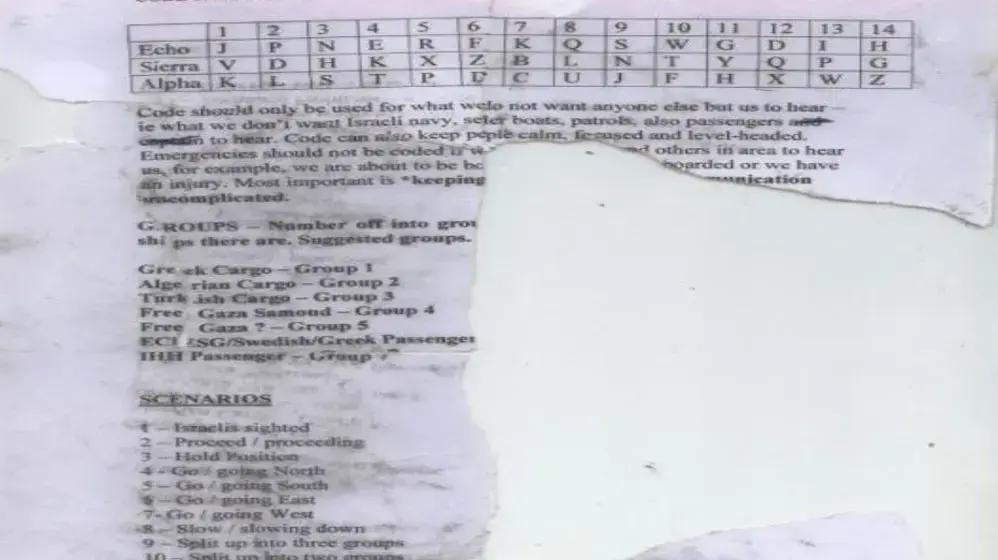 1 2 3 4 5 6 7 8 9 10 11 12 13 14
Echo J P N E R F K Q S W G D I H
Sierra V D H K X Z B L N T Y Q P G
Alpha K L S T P D C U J F H X W Z
Code should only be used for what we do not want anyone else but us to hear –
ie what we don't want Israeli navy, seler boats, patrols, also passengers and
captain to hear. Code can also keep peple calm, focused and level-headed.
Emergencies should not be coded if w d others in area to hear
us, for example, we are about to be bo boarded or we have
an injury. Most important is *keeping munication
uncomplicated.
GROUPS – Number off into grou
ships there are. Suggested groups.
Greek Cargo – Group 1
Algerian Cargo – Group 2
Turkish Cargo – Group 3
Free Gaza Samoud – Group 4
Free Gaza ? – Group 5
ECESG/Swedish/Greek Passenger
IHH Passenger – Group 7
SCENARIOS
1 – Israelis sighted
2 – Proceed / proceeding
3 – Hold Position
4 - Go / going North
5 – Go / going South
6 – Go / going East
7- Go / going West
8 – Slow / slowing down
9 – Split up into three groups
10 – Split up into two groups